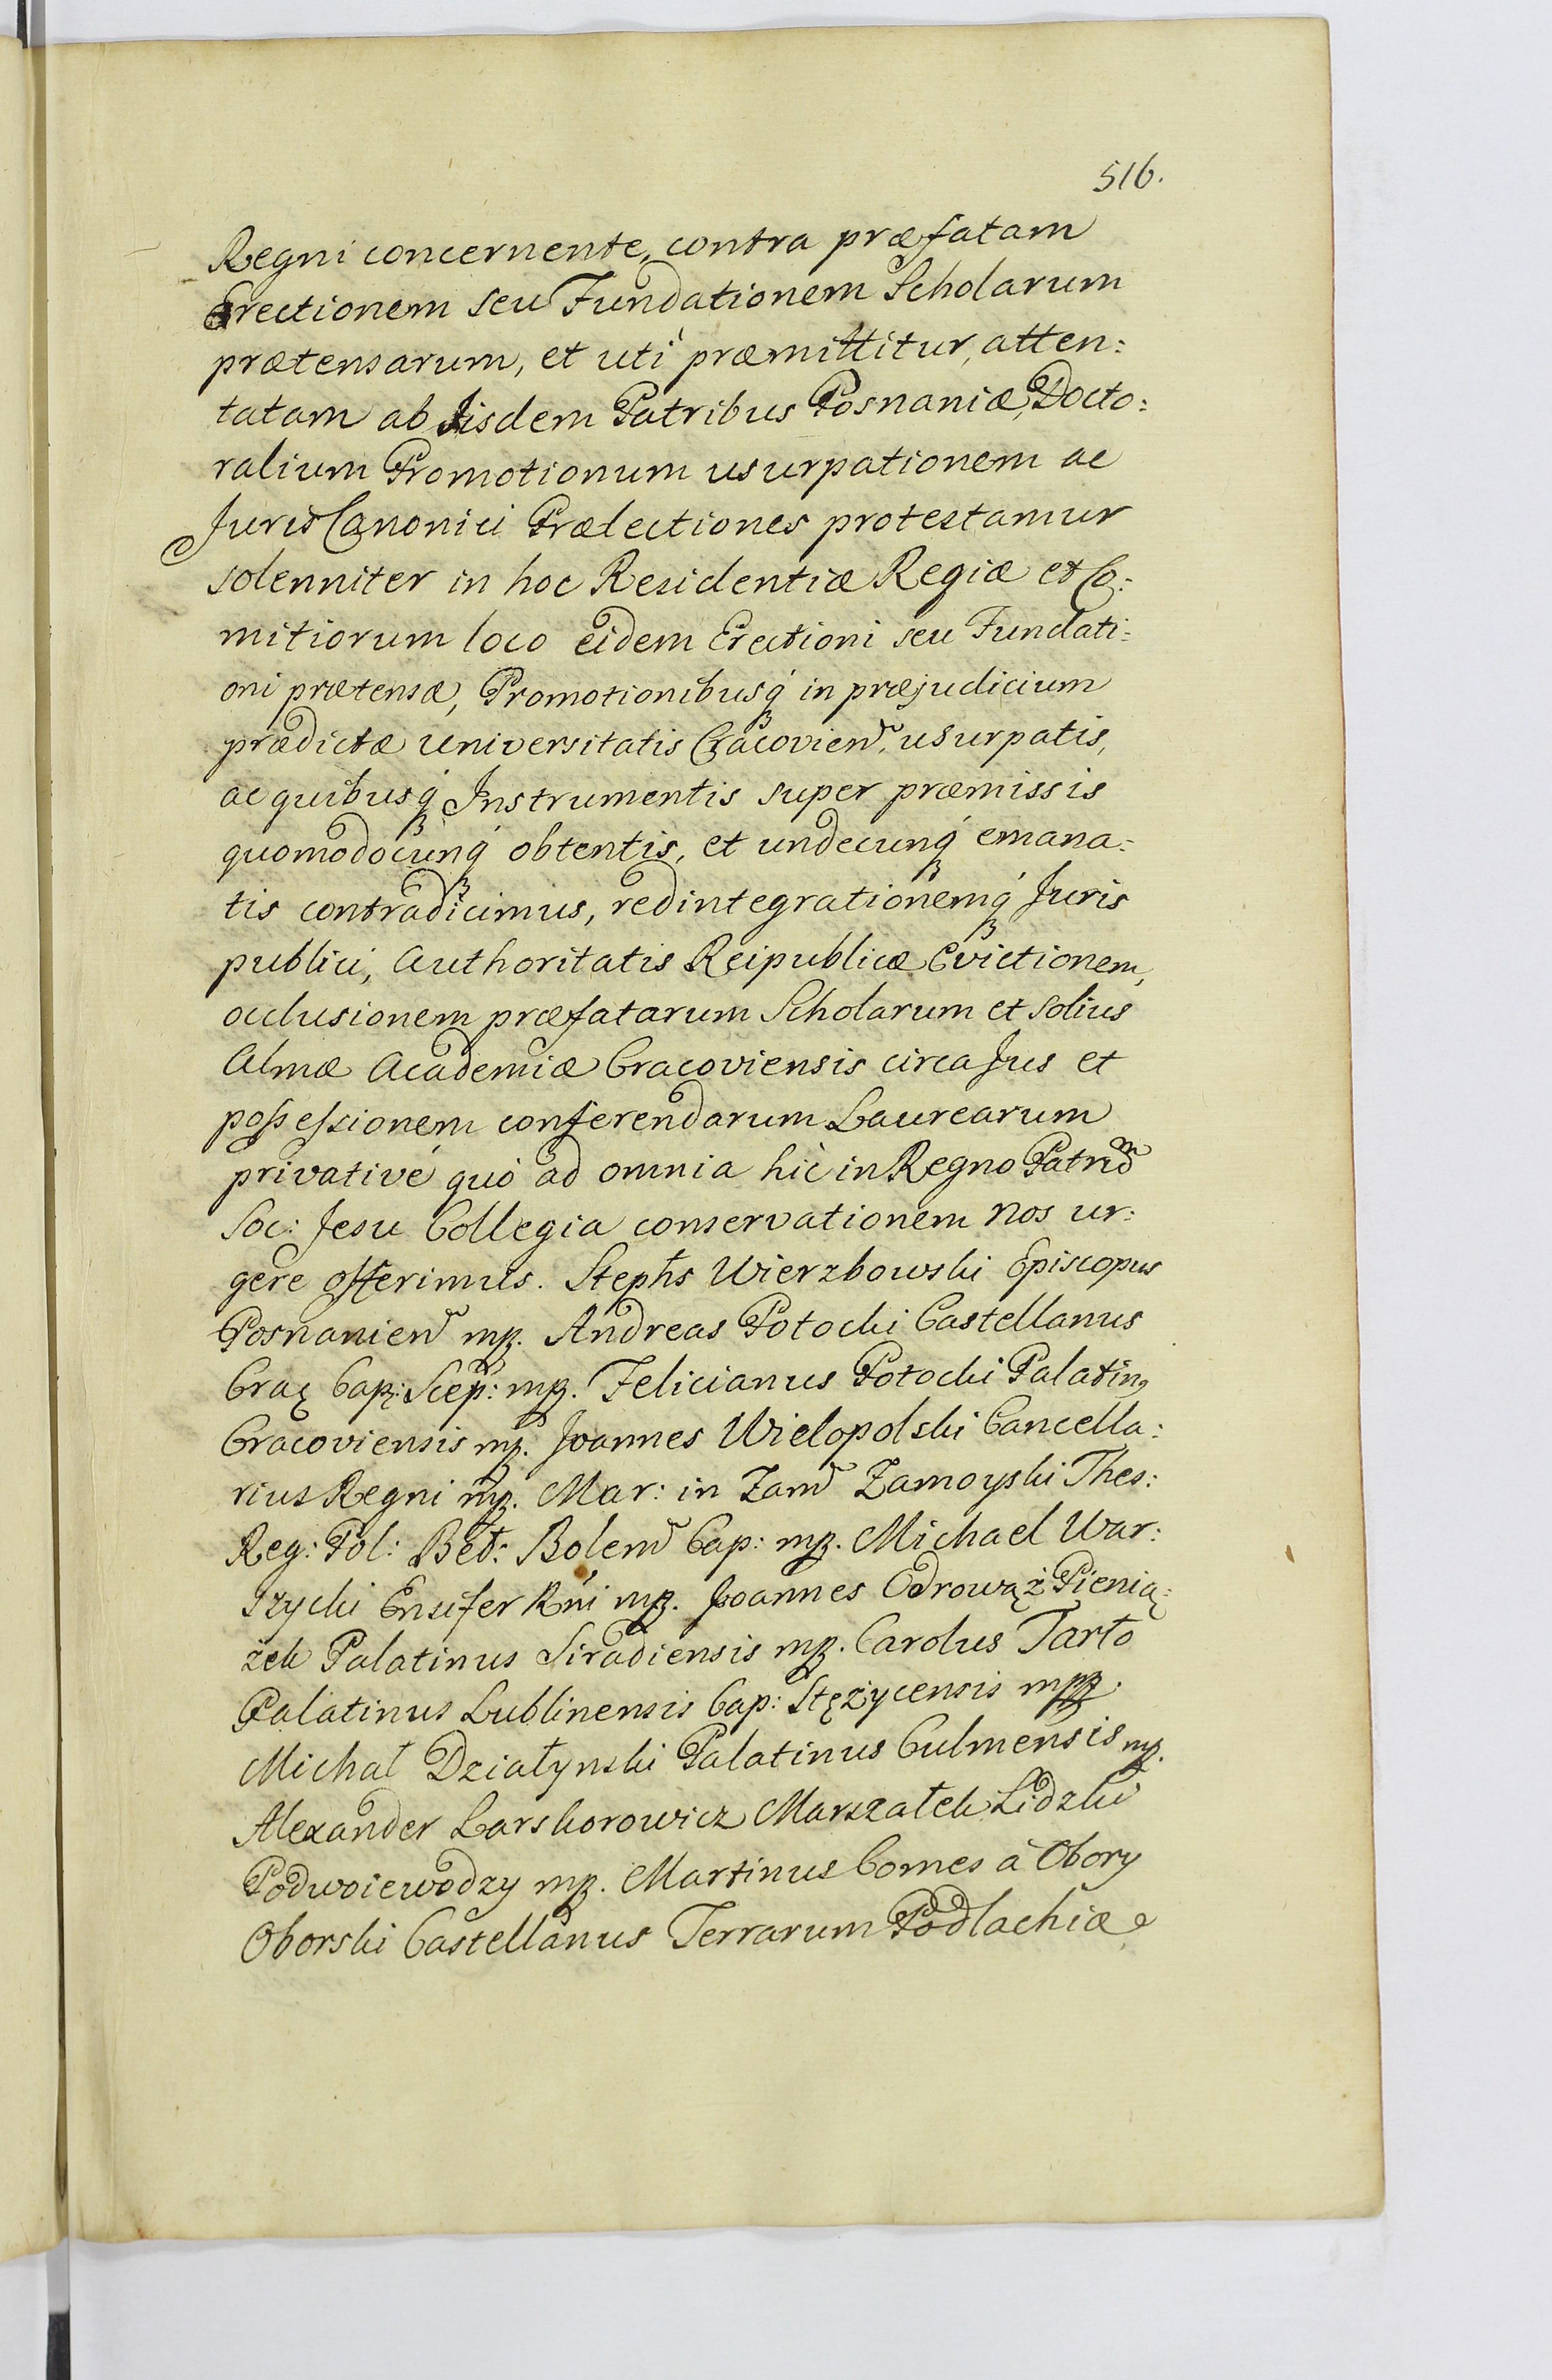 516.
Regni concernente, contra præfatam
Erectionem seu Fundationem Scholarum
prætensarum, et uti præmittitur, atten:
tatam ab Jisdem Patribus Posnaniæ, Docto:
ralium Promotionum usurpationem ac
Juris Canonici Prælectiones protestamur
solenniter in hoc Residentiæ Regiæ et Co:
mitiorum loco eidem Erectioni seu Fundati:
oni prætensæ, Promotionibusq́ in præjudicium
prædictæ Universitatis Cracovien̄. usurpatis,
ac quibusq́ Instrumentis super præmissis
quomodocunq́ obtentis, et undecunq́ emana:
tis contradicimus, redintegrationemq́ Juris
publici, Authoritatis Reipublicæ Evictionem,
occlusionem præfatarum Scholarum et solius
Almæ Academiæ Cracoviensis circa Jus et
possessionem conferendarum Laurearum
privativé quò ad omnia hìc in Regno Patrum
Soc: Jesu Collegia conservationem nos ur:
gere offerimus. Stephs Wierzbowski Episcopus
Posnanien̄ mp. Andreas Potocki Castellanus
Crac Cap: Scep: mp. Felicianus Potocki Palatin9
Cracoviensis mp. Joannes Wielopolski Cancella:
rius Regni mp. Mar: in Zam̄ Zamoyski Thes:
Reg: Pol: Bet: Bolem̄ Cap: mp. Michael War:
szycki Ensifer Rni mp. Joannes Odrowąż Pienią:
żek Palatinus Siradiensis mp. Carolus Tarło
Palatinus Lublinensis Cap: Stężycensis mpp.
Michał Działynski Palatinus Culmensis mp.
Alexander Larskorowicz Marszałek Lidzki
Podwoiewodzy mp. Martinus Comes à Obory
Oborski Castellanus Terrarum Podlachiæ